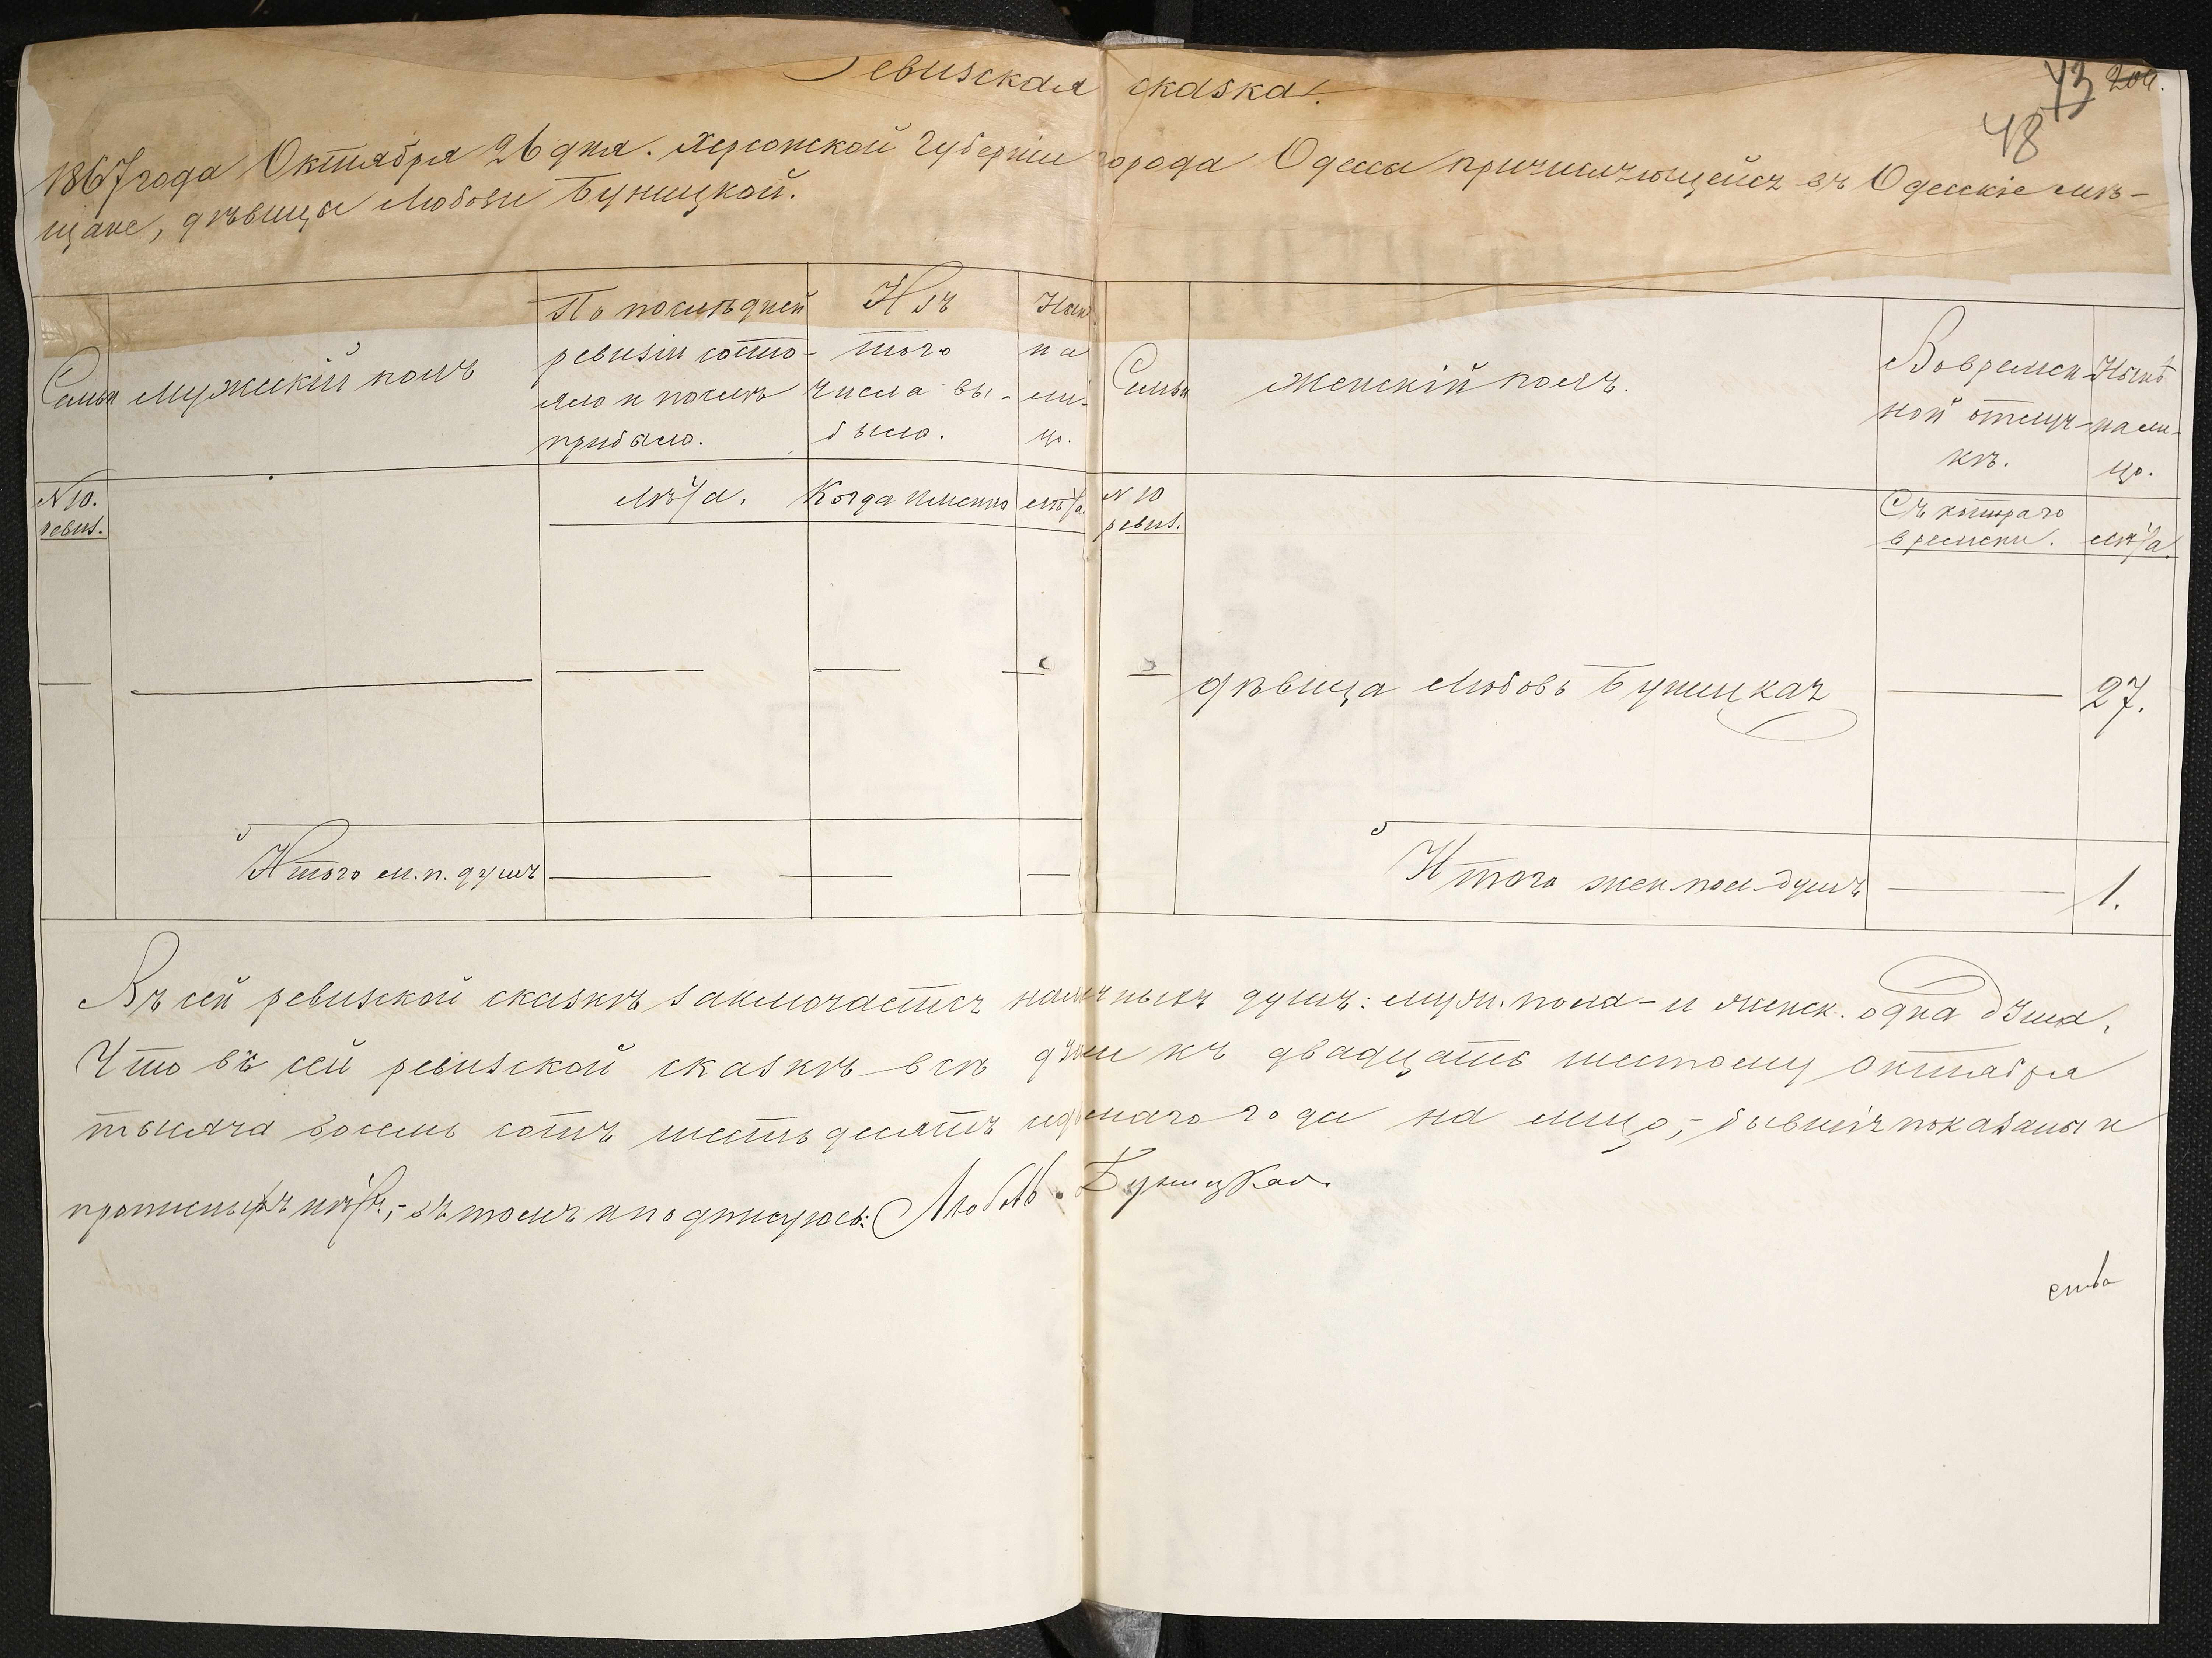 Ревизская сказка.
43 204.
48
1867 года Октября 26 дня. Херсонской Губерніи города Одессы причисляющейся въ Одесскіе мѣ-
щане, дѣвицы Любови Буницкой.
Семьи
Мужескій полъ
По послѣдней
ревизіи состо-
яло и послѣ
прибыло.
Изъ
того
числа вы-
было.
Нынѣ
на
ли-
цо.
Семьи
Женскій полъ.
Во времен-
ной отлуч-
кѣ.
Нынѣ
на ли-
цо.
N 10.
ревиз.
Лѣта.
Когда именно
лѣта.
N 10
ревиз.
Съ котораго
времени.
лѣта.
Дѣвица Любовь Буницкая
27.
Итого м. п. душъ
Итого жен. пол. душъ
1.
Въ сей ревизской сказкѣ заключается наличныхъ душъ: муж. пола - и женск. одна душа.
Что въ сей ревизской сказкѣ всѣ души къ двадцать шестому Октября
тысяча восемь сотъ шестьдесятъ седьмаго года на лицо, - бывшія показаны и
прописныхъ нѣтъ, - въ томъ и подписуюсь: Любовь Буницкая.